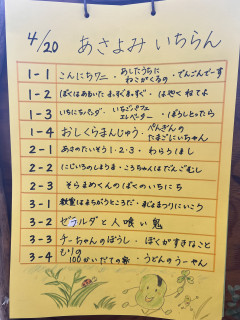 4/20 あさよみ いちらん
1-1 こんにちワニ・あしたうちにねこがくるの・てんごんでーす
1-2 ぼくはあるいた まっすぐまっすぐ・はやくねてよ
1-3 いちにちパンダ・いちごパフェエレベーター・ぼうしとったら
1-4 おしくらまんじゅう・ぺんぎんのたまごにいちゃん
2-1 あさのたいそう1・2・3・わらうほし
2-2 にじいろのしまうま・こうちゃんはだんごむし
2-3 そらまめくんのぼくのいちにち
3-1 教室はまちがうところだ・まじょまつりにいこう
3-2 ゼラルダと人喰い鬼
3-3 チーちゃんのぼうし・ぼくがすきなこと
3-4 もりの100かいだての家・うどんのうーやん